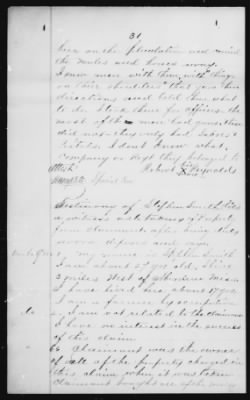 31
been on the plantation and
the mules and horses away.
I knew men with them with things
on their shoulders that gave them
directions and told them what
to do. I took them for officers. the
most of the men had guns, them
did not they only had Sabers &
Pistols, I don't know what
Company or Regt they belonged to
Attest Robert Reynolds
Special Com
Testimony of Stephen Smith,
a witness
from claimant, after being duly
sworn deposes and says
my name is Stephen Smith
I am about 57 yrs old, I live
3 miles East of
I have lived here about 17 years
I am a farmer by occupation
I am not related to the claimant
I have no interest in the success
of this claim
Claimant was the owner
of all of the property charged in
this claim when it was taken
Claimant bought one of the mules